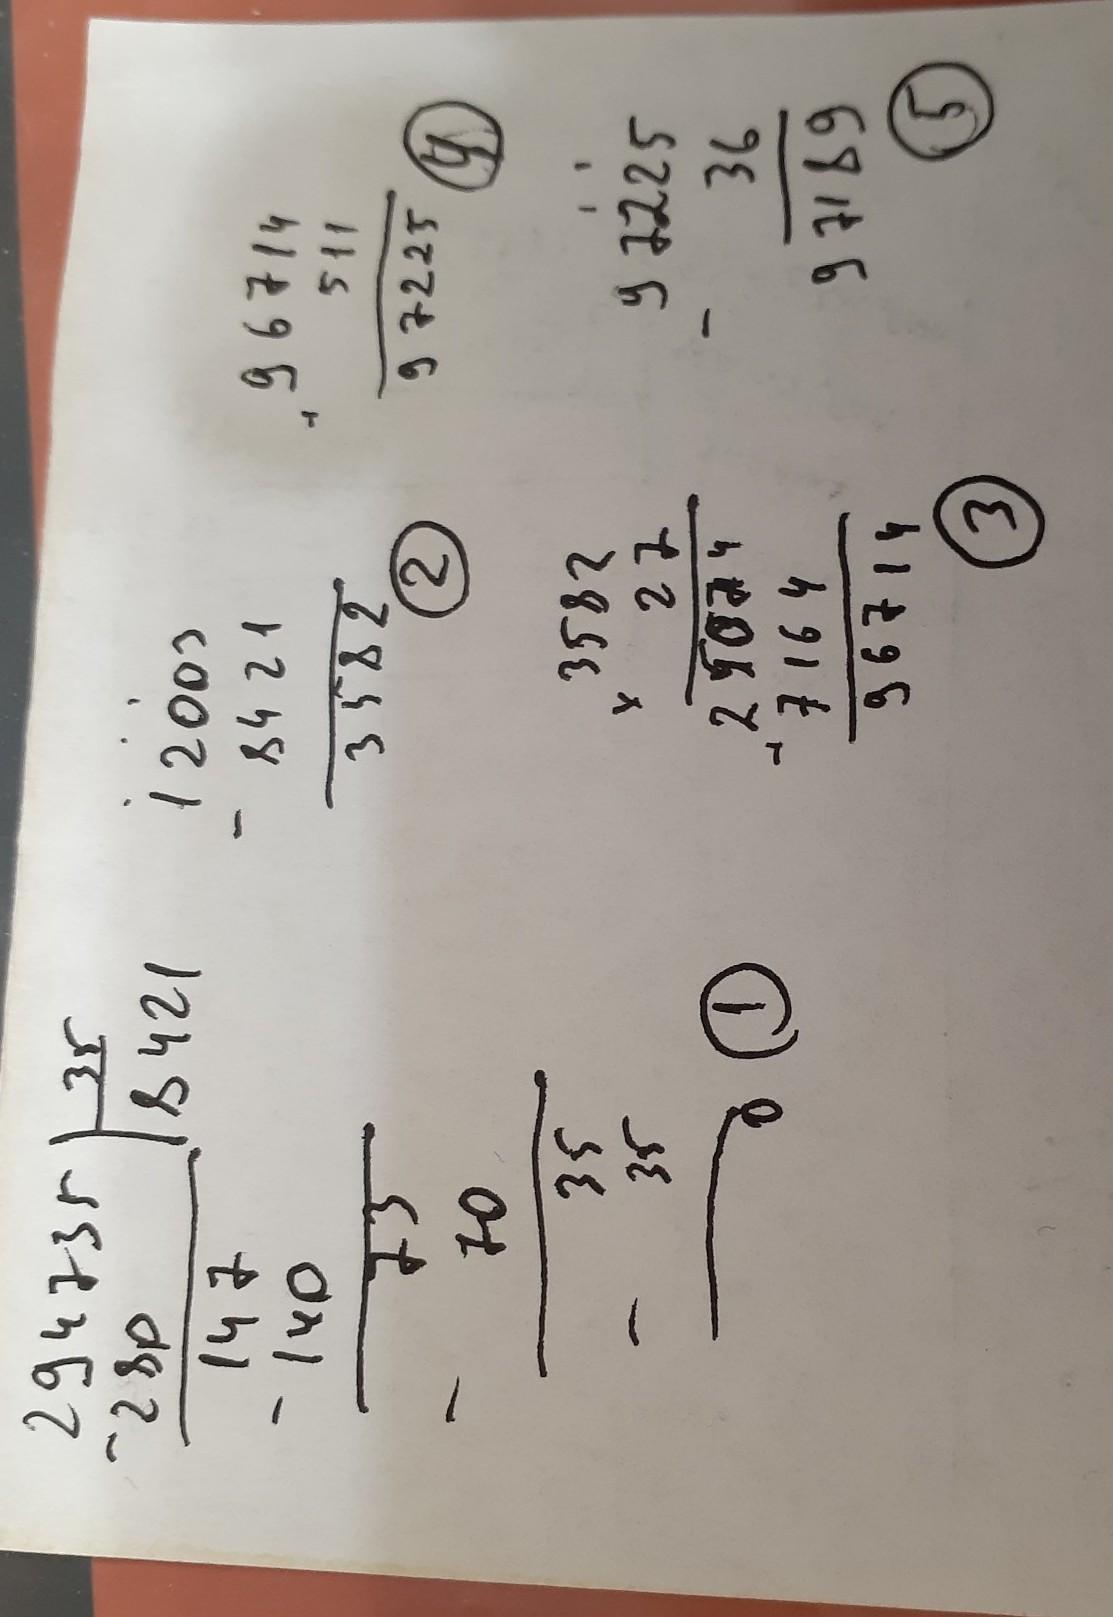 294735 | 35
-280 | 8421
147
- 140
73
- 70
35
- 35
0
①
12003
- 8421
3582
②
3582
x 27
25074
+ 7164
96714
③
+ 96714
511
97225
④
97225
- 36
97189
⑤